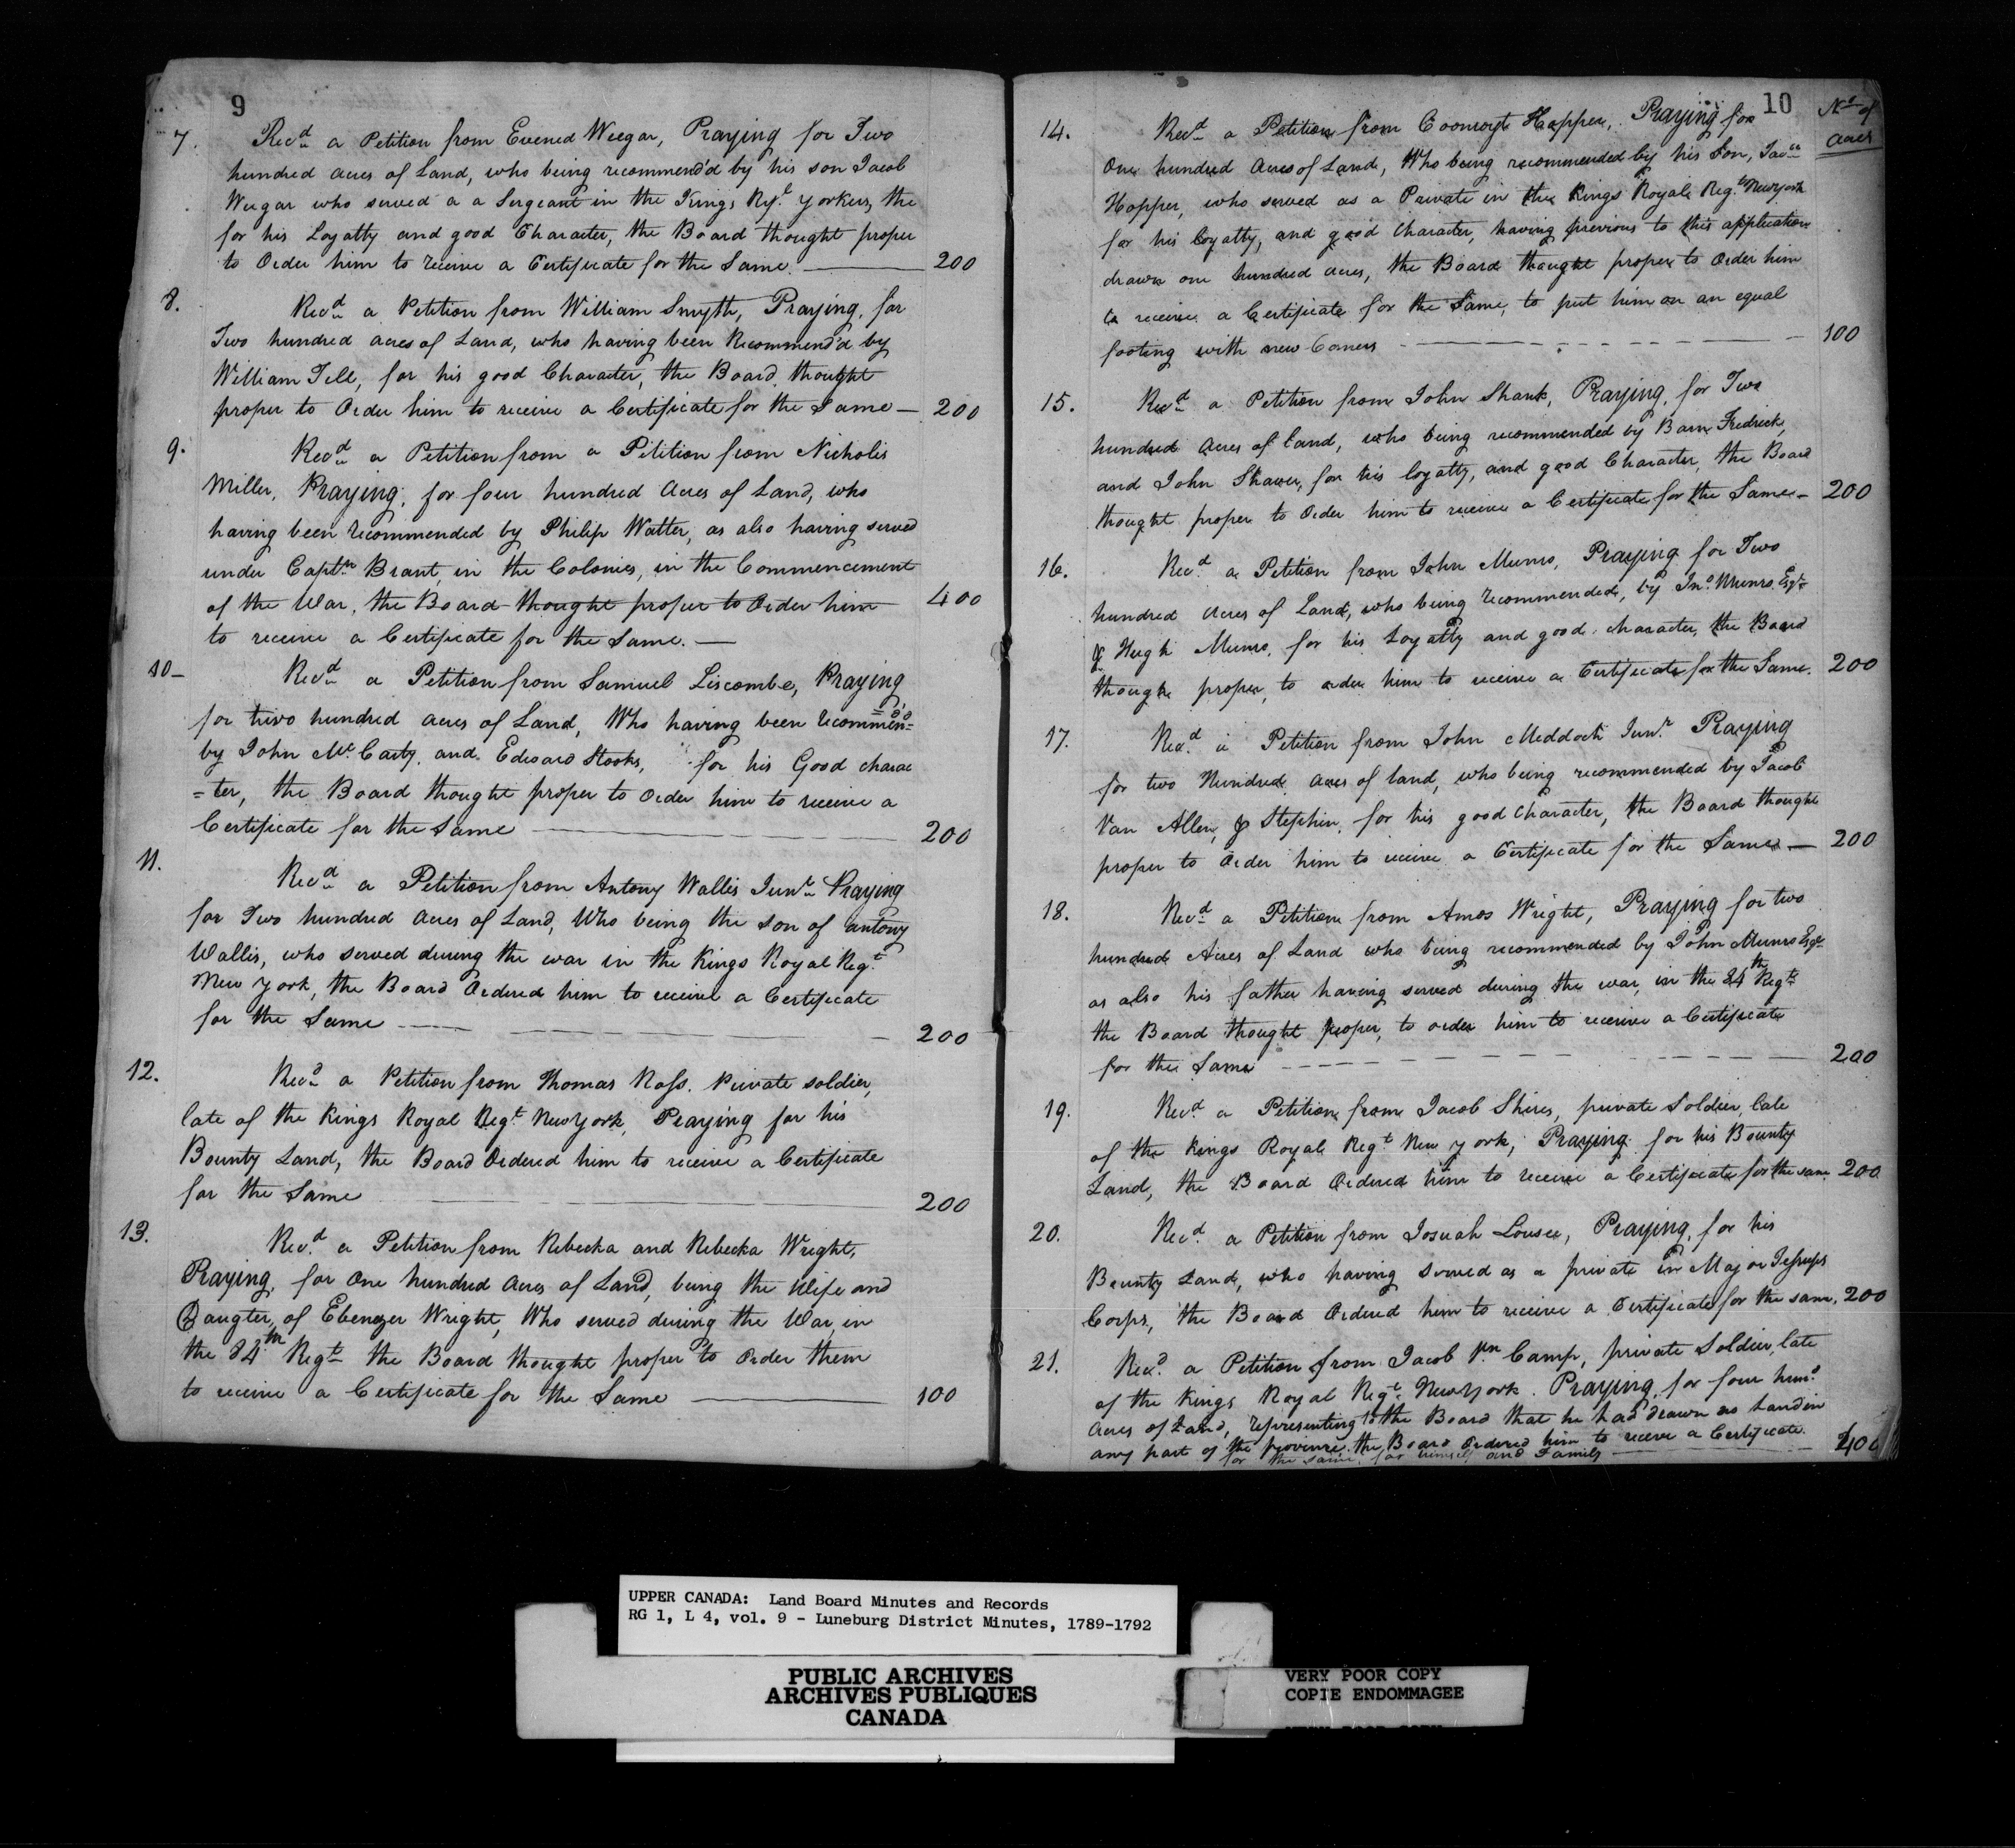 9
7. Recd a Petition from Evened Weegar, Praying for Two
hundred acres of Land, who being recommend'd by his son Jacob
Weegar who served a a Sergeant in the Kings Ryl Yorkers, the
for his Loyatty and good Character, the Board thought proper
to Order him to receive a Certificate for the Same. — 200
8. Recd a Petition from William Smyth, Praying, for
Two hundred acres of Land, who having been Recommend'd by
William Tell, for his good Character, the Board thought
proper to Order him to receive a Certificate for the Same — 200
9. Recd a Petition from a Pitition from Nicholis
Miller, Praying, for four hundred Acres of Land, who
having been recommended by Philip Walter, as also having served
under Captn Brant, in the Colonies, in the Commencement
of the War, the Board thought proper to Order him 400
to receive a Certificate for the Same. —
10 – Recd a Petition from Samuel Liscombe, Praying
for two hundred acres of Land, Who having been recommen=
=d'd
by John Mc Carty, and Edward Hooks, for his Good charac
=ter, the Board thought proper to Order him to receive a
Certificate for the Same — 200
11. Recd a Petition from Antony Wallis Junr Praying
for Two hundred Acres of Land, Who being the son of antony
Wallis, who served during the war in the Kings Royal Regt
New York, the Board Ordered him to receive a Certificate
for the Same — 200
12. Recd a Petition from Thomas Ross. Private soldier,
late of the Kings Royal Regt New York, Praying for his
Bounty Land, the Board Ordered him to receive a Certificate
for the Same — 200
13. Recd a Petition from Rebecka and Rebecka Wright,
Praying, for One hundred Acres of Land, being the Wife and
Daugter, of Ebenezer Wright, Who served during the War, in
the 84th Regt the Board thought proper to Order them
to receive a Certificate for the Same — 100
10
No of
acres
14. Recd a Petition from Hopper, Praying for
One hundred Acres of Land, Who being recommended by his Son,
Hopper, who served as a Private in the Kings Royal Regt New York
for his loyatty, and good Character, having previous to this application
drawn one hundred acres, the Board thought proper to Order him
to receive a Certificate for the Same, to put him on an equal
footing with new Comers — 100
15. Recd a Petition from John Shank, Praying, for Two
hundred Acres of land, who being recommended by Barn Fredrick,
and John Shaver, for his loyatty, and good Character, the Board
thought proper to Order him to receive a Certificate for the Same – 200
16. Recd a Petition from John Munro, Praying for Two
hundred Acres of Land, who being recommended, by Jno Munro Esqr
& Hugh Munro, for his Loyatty and good character, the Board
thought proper, to order him to receive a Certificate for the Same. 200
17. Recd a Petition from John Meddock Junr Praying
for two Hundred acres of land, who being recommended by Jacob
Van Allen, & Stephin, for his good Character, the Board thought
proper to Order him to receive a Certificate for the Same — 200
18. Recd a Petition from Amos Wright, Praying for two
hundred Acres of Land who being recommended by John Munro Esqr
as also his father having served during the war, in the 84th Regt
the Board thought proper, to order him to receive a Certificate
for the Same — 200
19. Recd a Petition from Jacob Shires, private Soldier, late
of the Kings Royal Regt New york, Praying for his Bounty
Land, the Board Ordered him to receive a Certificate for the same 200
20. Recd a Petition from Josuah Lousee, Praying, for his
Bounty Land, who having Served as a private in Major Jessups
Corps, the Board Ordered him to receive a Certificate for the same, 200
21. Recd a Petition from Jacob Vn Camp, private Soldier, late
of the Kings Royal Regt New York. Praying, for four hund
Acres of Land, representing to the Board that he had drawn no Land in
any part of the Province, the Board Ordered him to receve a Certificate
for the same for himself and Family — 400
UPPER CANADA: Land Board Minutes and Records
RG 1, L 4, vol. 9 - Luneburg District Minutes, 1789-1792
PUBLIC ARCHIVES
ARCHIVES PUBLIQUES
CANADA
VERY POOR COPY
COPIE ENDOMMAGEE